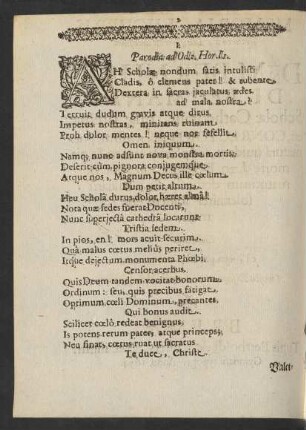 Parodia ad Od. 2. Hor. l. 1.
AH! Scholæ nondum satis intulisti
Cladis, ô clemens pater! & rubente
Dextera in sacras jaculatus ædes.
ad mala nostra!
Terruit dudum gravis atque dirus
Impetus nostras, minitans ruinam
Proh dolor mentes! neque nos fefellit
Omen iniquum.
Namq; nunc adsunt nova monstra mortis:
Deserit cum pignora conjugemque
Atque nos, Magnum Decus ille cœlum
Dum petit altum.
Heu Schola durus dolor hæret alma!
Nota quæ sedes fuerat Docenti,
Nunc superjectâ cathedrâ locarunt
Tristia sedem.
In pios, en! mors acuit securim,
Quâ malus cœtus meliùs periret,
Itque dejectum monumenta Phœbi,
Censor acerbus.
Quis Deum tandem vocitat bonorum
Ordinum: seu quis precibus fatigat
Optimum cœli Dominum, precantes
Qui bonus audit.
Scilicet cœlô redeat benignus,
Is potens rerum pater, atque princeps,
Neu sinat, cœtus ruat ut sacratus
Te duce, Christe.
Valci-